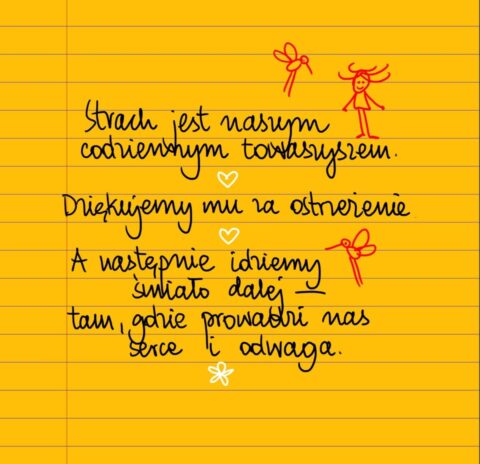 Strach jest naszym
codziennym towarzyszem.
Dziękujemy mu za ostrzeżenie
A następnie idziemy
śmiało dalej —
tam, gdzie prowadzi nas
serce i odwaga.